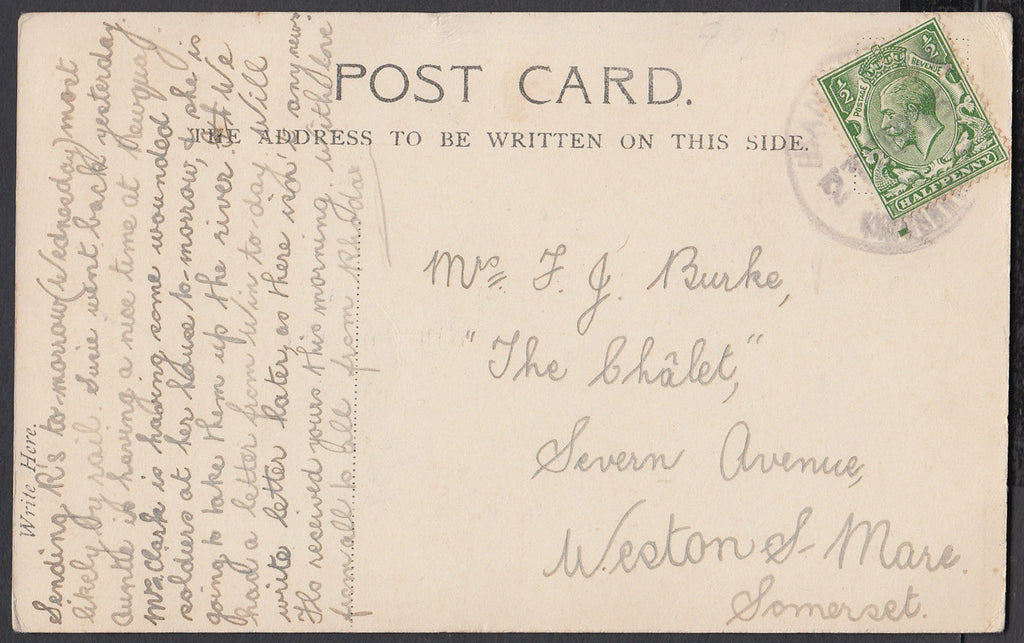 POST CARD.
THE ADDRESS TO BE WRITTEN ON THIS SIDE.
Write Here.
Sending R's to-morrow (Wednesday) most
likely by rail. Susie went back yesterday
Auntie is having a nice time at Newquay.
Mrs Clark is having some wounded
soldiers at her house to-morrow, & she is
going to take them up the river. We
had a letter from Win to-day. Will
write letter later, as there isn't any news.
received yours this morning. with love
from all to all from
Mrs F. J. Burke,
"The Châlet",
Severn Avenue,
Weston S- Mare.
Somerset.
½ ½
POSTAGE REVENUE
HALFPENNY